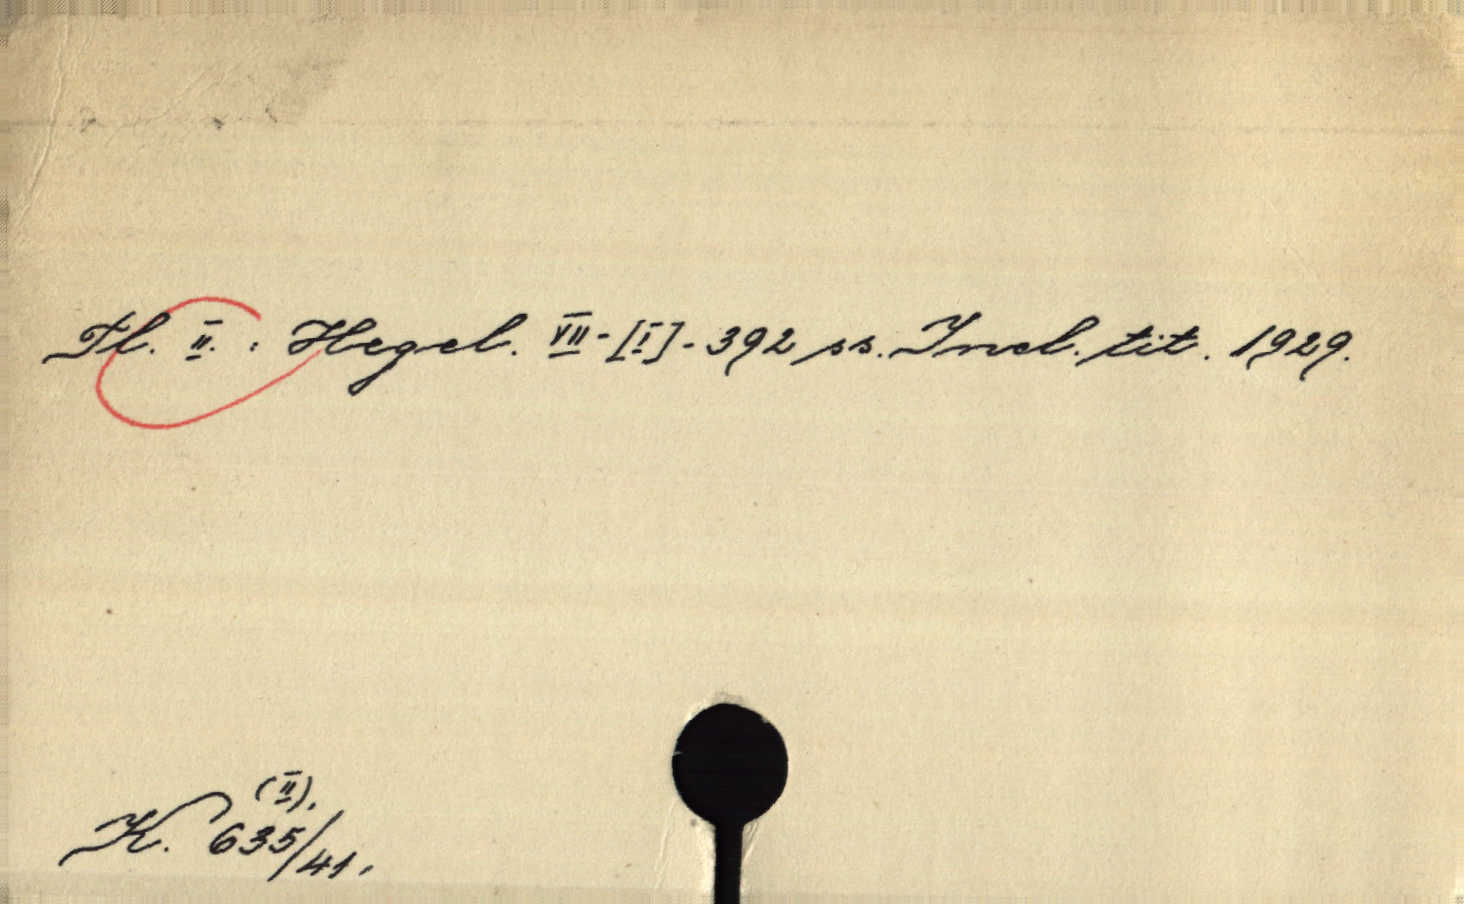 Tl. II. : Hegel. VII-[I]-392 ss. Incl. tit. 1929.
(II).
K. 635/41.